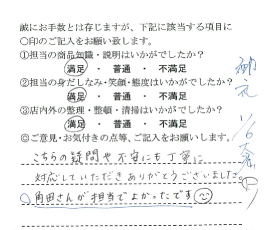 誠にお手数とは存じますが、下記に該当する項目に
〇印のご記入をお願い致します。
①担当の商品知識・説明はいかがでしたか?
満足 ・ 普通 ・ 不満足
②担当の身だしなみ・笑顔・態度はいかがでしたか?
満足 ・ 普通 ・ 不満足
③店内外の整理・整頓・清掃はいかがでしたか?
満足 ・ 普通 ・ 不満足
◎ご意見・お気付きの点等、ご記入をお願いします。
こちらの疑問や不安にも丁寧に
対応していただきありがとうございました。
角田さんが担当でよかったです